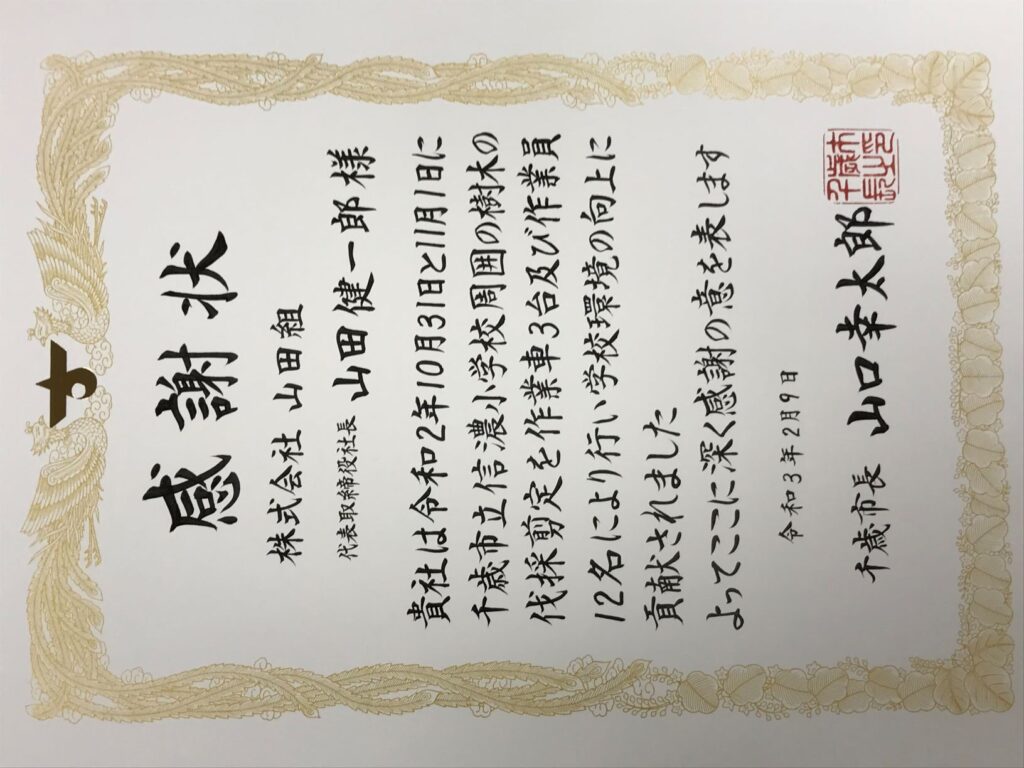 感謝状
株式会社 山田組
代表取締役社長 山田健一郎様
貴社は令和2年10月31日と11月1日に
千歳市立信濃小学校周囲の樹木の
伐採剪定を作業車3台及び作業員
12名により行い学校環境の向上に
貢献されました
よってここに深く感謝の意を表します
令和3年2月9日
千歳市長 山口幸太郎
千歳市長之印